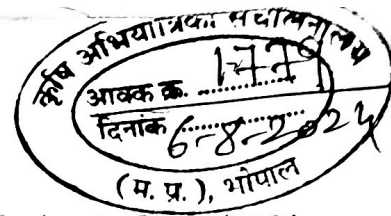 कृषि अभियांत्रिकी संचालनालय
आवक क्र. 1779
दिनांक 6-8-2024
(म. प्र.), भोपाल